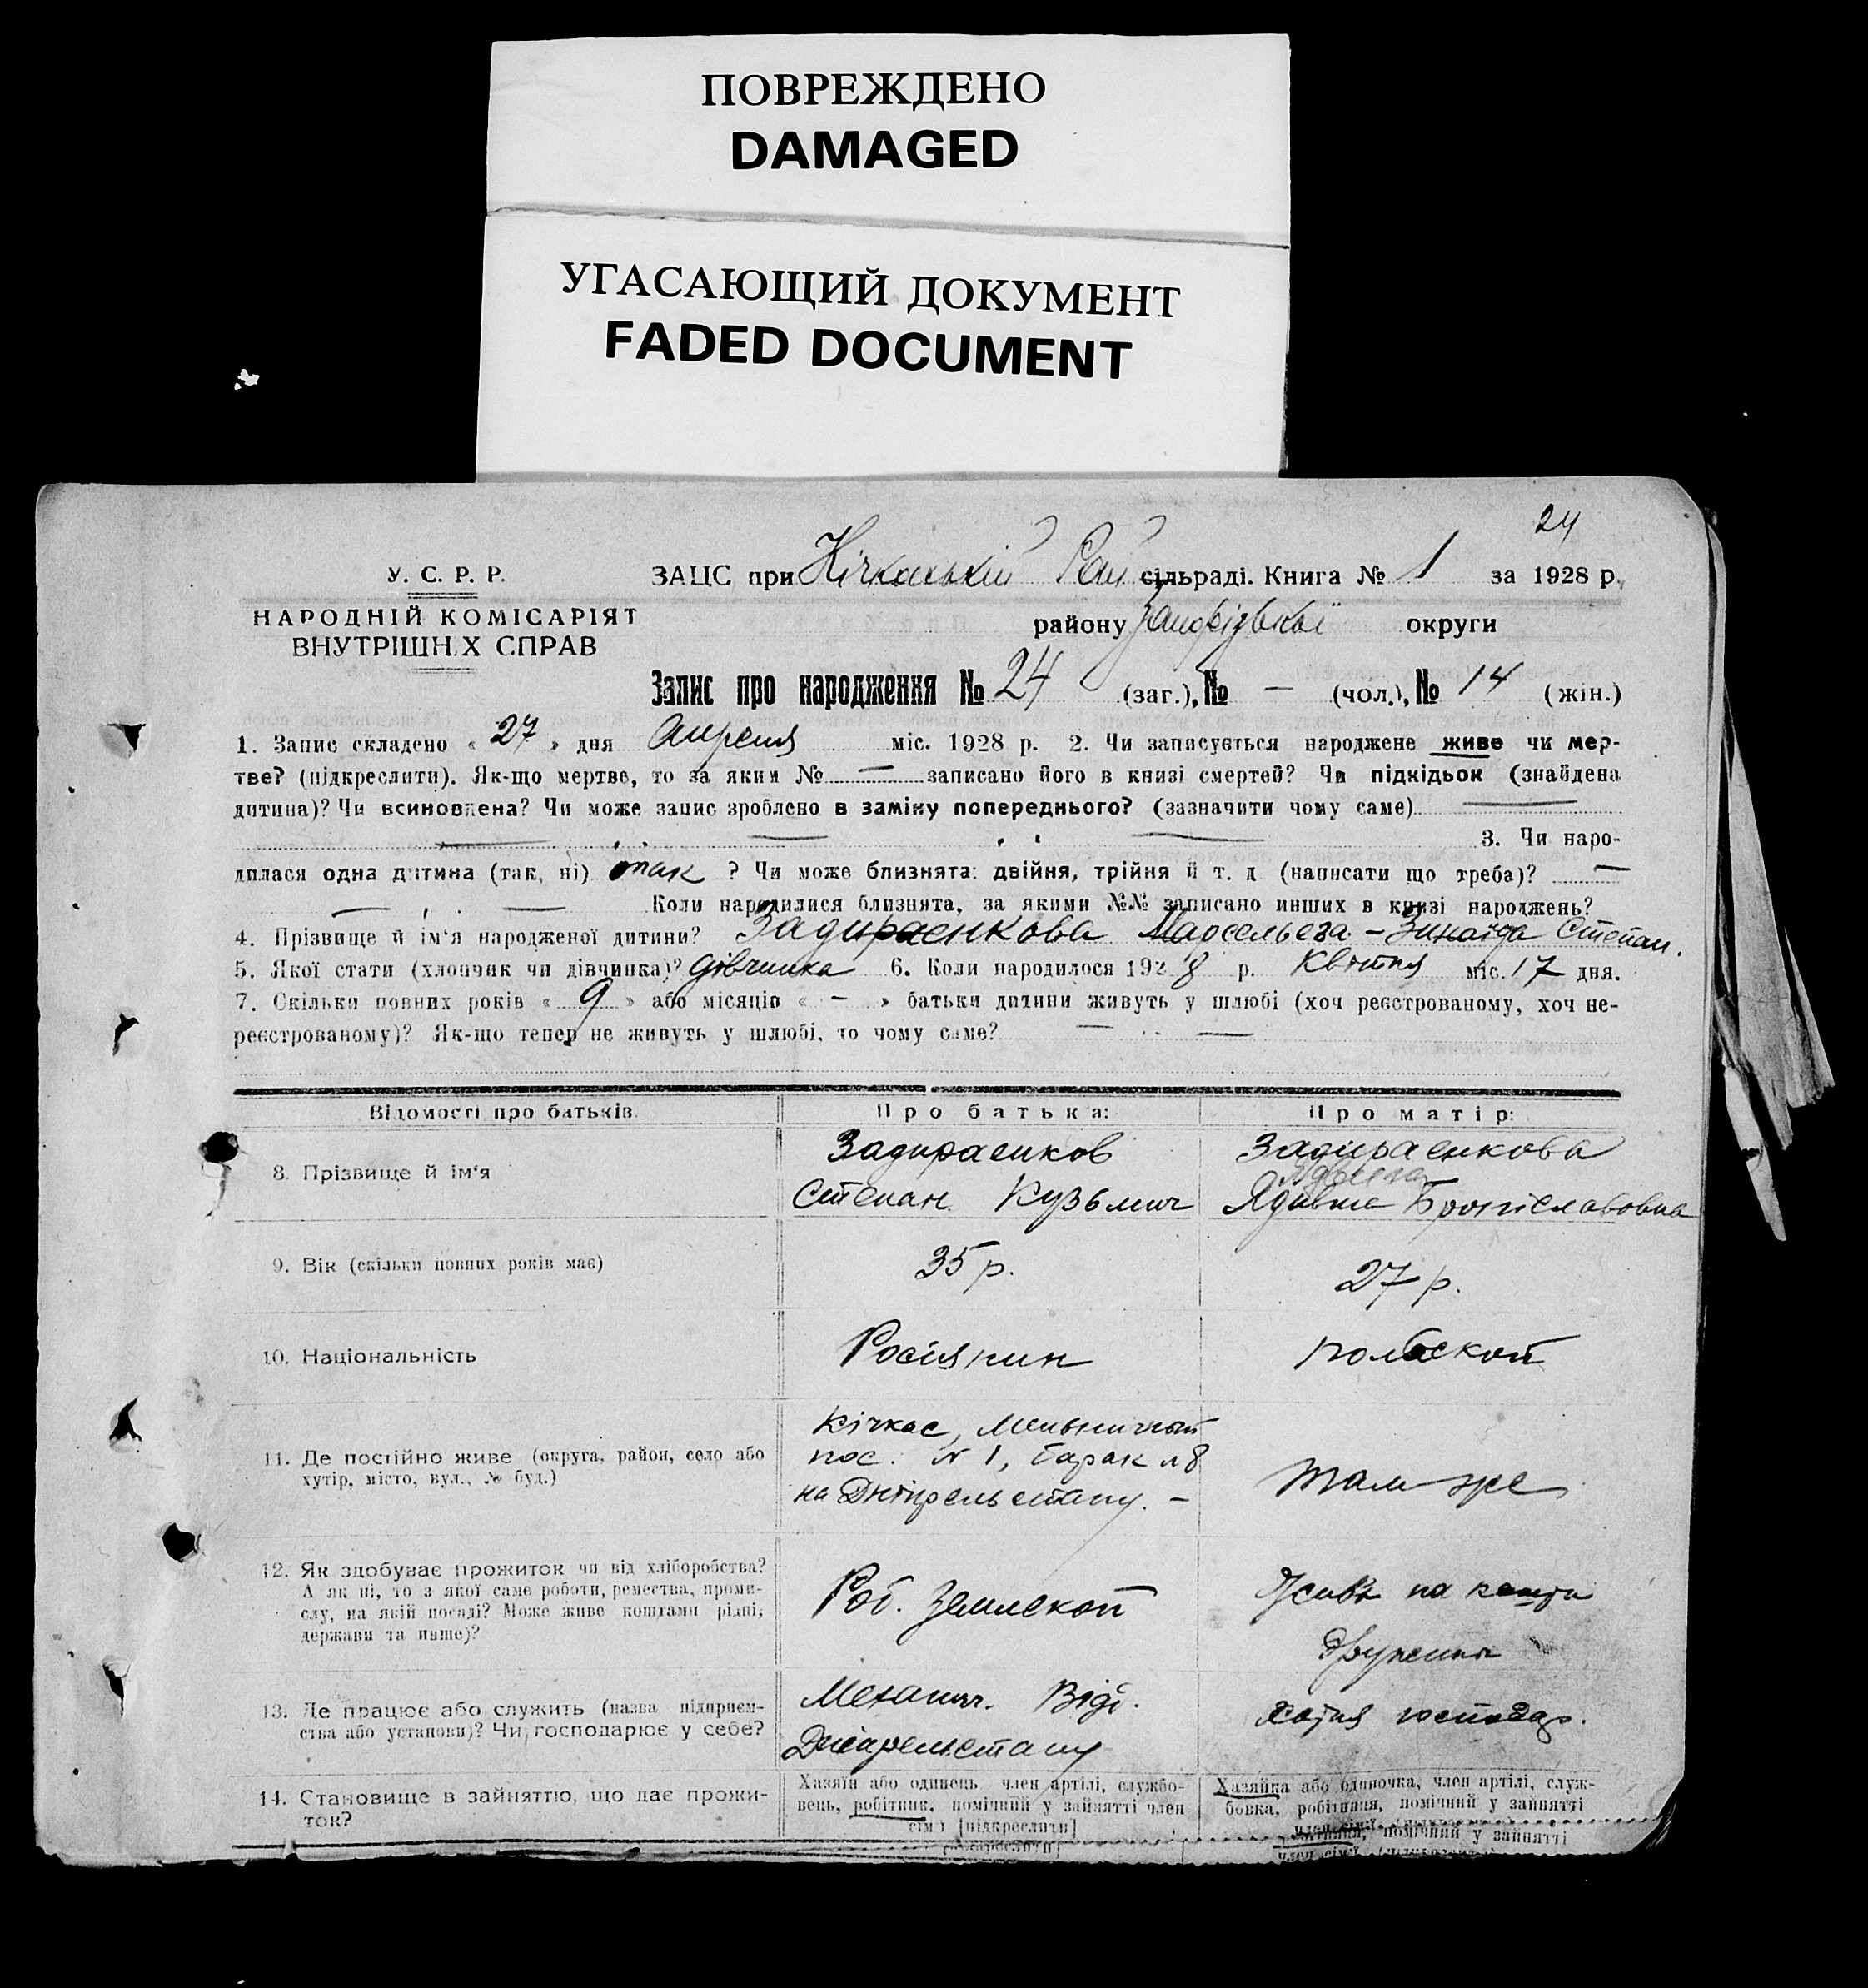 ПОВРЕЖДЕНО
DAMAGED
УГАСАЮЩИЙ ДОКУМЕНТ
FADED DOCUMENT
24
У. С. Р. Р.
НАРОДНІЙ КОМІСАРІЯТ
ВНУТРІШН.Х СПРАВ
ЗАЦС при Кічкаській Рай сільраді. Книга № 1 за 1928 р.
району Запорізької округи
Запис про народження № 24 (заг.), № — (чол.), № 14 (жін.)
1. Запис складено « 27 » дня Апреля міс. 1928 р. 2. Чи записується народжене живе чи мер-
тве? (підкреслити). Як-що мертве, то за яким № — записано його в книзі смертей? Чи підкідьок (знайдена
дитина)? Чи всиновлена? Чи може запис зроблено в заміну попереднього? (зазначити чому саме) —
— — — 3. Чи наро-
дилася одна дитина (так, ні) так ? Чи може близнята: двійня, трійня й т. д. (написати що треба)? —
— — Коли народилися близнята, за якими №№ записано инших в книзі народжень?
4. Прізвище й ім'я народженої дитини? Задираенкова Марсельеза - Зинаїда Степан.
5. Якої стати (хлопчик чи дівчинка)? дівчинка 6. Коли народилося 1928 р. Квітня міс. 17 дня.
7. Скільки повних років « 9 » або місяців « — » батьки дитини живуть у шлюбі (хоч реєстрованому, хоч не-
реєстрованому)? Як-що тепер не живуть у шлюбі, то чому саме? — —
Відомості про батьків
Про батька:
Про матір:
8. Прізвище й ім'я
Задираенков
Степан Кузьмич
Задираенкова
Ядвига
Бропіславовна
9. Вік (скільки повних років має)
35 р.
27 р.
10. Національність
Росіянин
польской
11. Де постійно живе (округа, район, село або
хутір, місто, вул., № буд.)
Кічкас,
пос. № 1, барак № 8
на Дніпрельстану. —
там-же
12. Як здобуває прожиток чи від хліборобства?
А як ні, то з якої саме роботи, ремества, проми-
слу, на якій посаді? Може живе коштами рідні,
держави та инше)?
Роб. Землекоп
на кошти
дружини
13. Де працює або служить (назва підприєм-
ства або установи)? Чи господарює у себе?
Механич. Віді.
Дніпрельстану
хатня господар.
14. Становище в зайняттю, що дає прожи-
ток?
Хазяїн або одинець член артілі, службо-
вець, робітник, помічний у зайнятті член
сім'ї [підкреслити]
Хазяйка або одиночка, член артілі, служ-
бовка, робітниця, помічний у зайнятті
член сім'ї
помічний у зайнятті